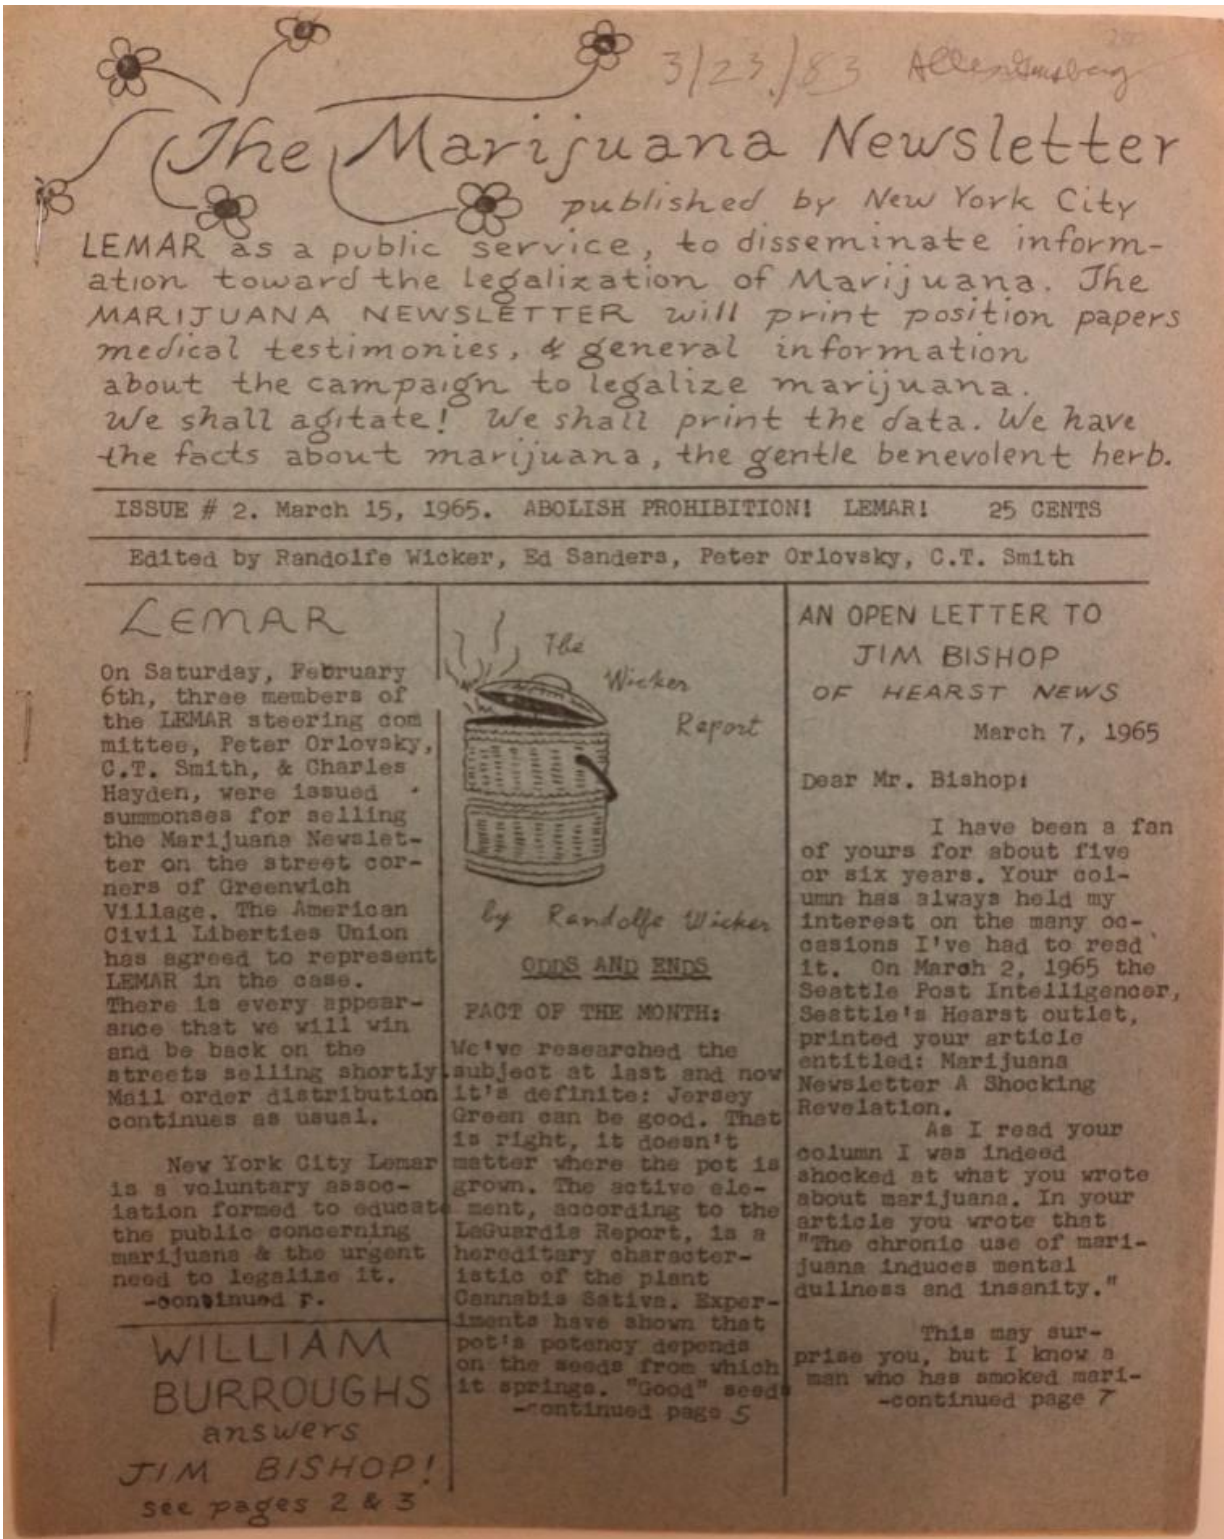 3/23/83 Allen Ginsberg
The Marijuana Newsletter
published by New York City
LEMAR as a public service, to disseminate inform-
ation toward the legalization of Marijuana. The
MARIJUANA NEWSLETTER will print position papers
medical testimonies, & general information
about the campaign to legalize marijuana.
We shall agitate! We shall print the data. We have
the facts about marijuana, the gentle benevolent herb.
ISSUE # 2. March 15, 1965. ABOLISH PROHIBITION! LEMAR! 25 CENTS
Edited by Randolfe Wicker, Ed Sanders, Peter Orlovsky, C.T. Smith
LEMAR
On Saturday, February
6th, three members of
the LEMAR steering com
mittee, Peter Orlovsky,
C.T. Smith, & Charles
Hayden, were issued
summonses for selling
the Marijuana Newslet-
ter on the street cor-
ners of Greenwich
Village. The American
Civil Liberties Union
has agreed to represent
LEMAR in the case.
There is every appear-
ance that we will win
and be back on the
streets selling shortly.
Mail order distribution
continues as usual.
New York City Lemar
is a voluntary assoc-
iation formed to educate
the public concerning
marijuana & the urgent
need to legalize it.
-continued P.
WILLIAM
BURROUGHS
answers
JIM BISHOP!
see pages 2 & 3
The
Wicker
Report
by Randolfe Wicker
ODDS AND ENDS
FACT OF THE MONTH:
We've researched the
subject at last and now
it's definite: Jersey
Green can be good. That
is right, it doesn't
matter where the pot is
grown. The active ele-
ment, according to the
LaGuardia Report, is a
hereditary character-
istic of the plant
Cannabis Sativa. Exper-
iments have shown that
pot's potency depends
on the seeds from which
it springs. "Good" seed
-continued page 5
AN OPEN LETTER TO
JIM BISHOP
OF HEARST NEWS
March 7, 1965
Dear Mr. Bishop:
I have been a fan
of yours for about five
or six years. Your col-
umn has always held my
interest on the many oc-
casions I've had to read
it. On March 2, 1965 the
Seattle Post Intelligencer,
Seattle's Hearst outlet,
printed your article
entitled: Marijuana
Newsletter A Shocking
Revelation.
As I read your
column I was indeed
shocked at what you wrote
about marijuana. In your
article you wrote that
"The chronic use of mari-
juana induces mental
dullness and insanity."
This may sur-
prise you, but I know a
man who has smoked mari-
-continued page 7